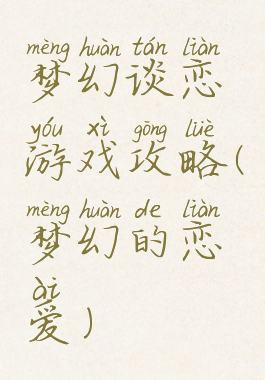 mèng huàn tán liàn
梦幻谈恋
yóu xì gōng lüè
游戏攻略(
mèng huàn de liàn
梦幻的恋
ài
爱)